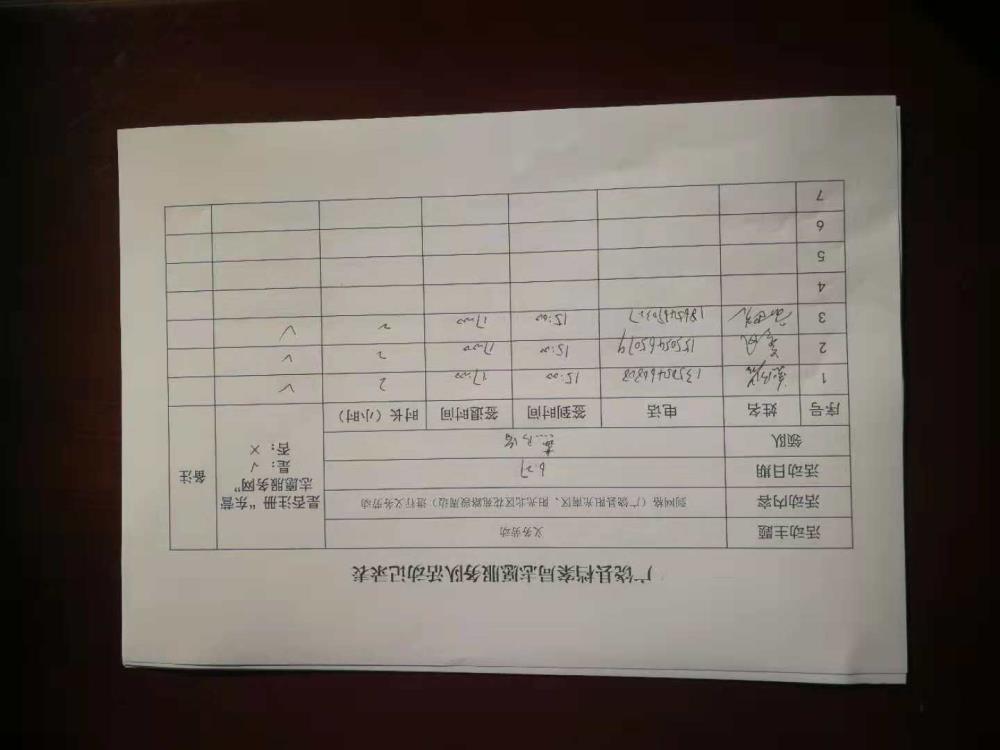 广饶县档案局志愿服务队活动记录表
活动主题 义务劳动 是否注册“东营志愿服务网” 是：√ 否：× 备注
活动内容 到网格（广饶县阳光南区、阳光北区花苑路段周边）进行义务劳动
活动日期 6.27
领队
序号 姓名 电话 签到时间 签退时间 时长（小时）
1 15:00 17:00 2 √
2 15054465079 15:00 17:00 2 √
3 15:00 17:00 2 √
4
5
6
7